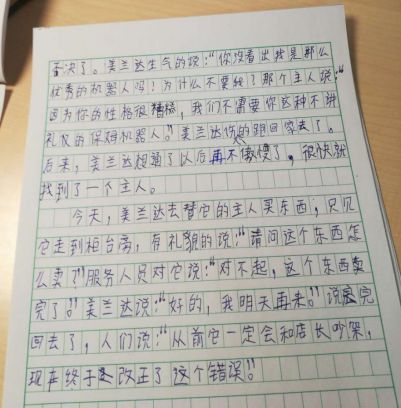 否决了。美兰达生气的说:“你没看出我是那么
优秀的机器人吗?为什么不要我?那个主人说:“
因为你的性格很糟糕,我们不需要你这种不讲
礼仪的保姆机器人。”美兰达伤心的跑回家去了。
后来,美兰达想通了以后再不傲慢了,很快就
找到了一个主人。
今天,美兰达去替它的主人买东西,只见
它走到柜台旁,有礼貌的说:“请问这个东西怎
么卖?”服务人员对它说:“对不起,这个东西卖
完了。”美兰达说:“好的,我明天再来。”说完
回去了,人们说:“从前它一定会和店长吵架,
现在终于改正了这个错误。”